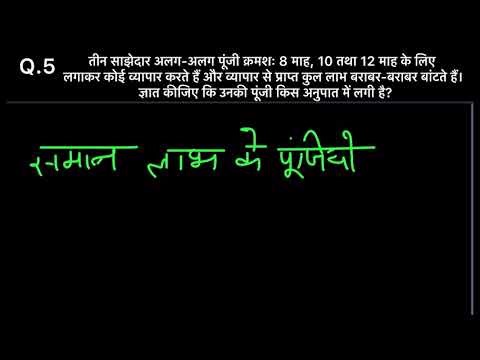 Q.5
तीन साझेदार अलग-अलग पूंजी क्रमशः 8 माह, 10 तथा 12 माह के लिए
लगाकर कोई व्यापार करते हैं और व्यापार से प्राप्त कुल लाभ बराबर-बराबर बांटते हैं।
ज्ञात कीजिए कि उनकी पूंजी किस अनुपात में लगी है?
समान लाभ के पूंजियो